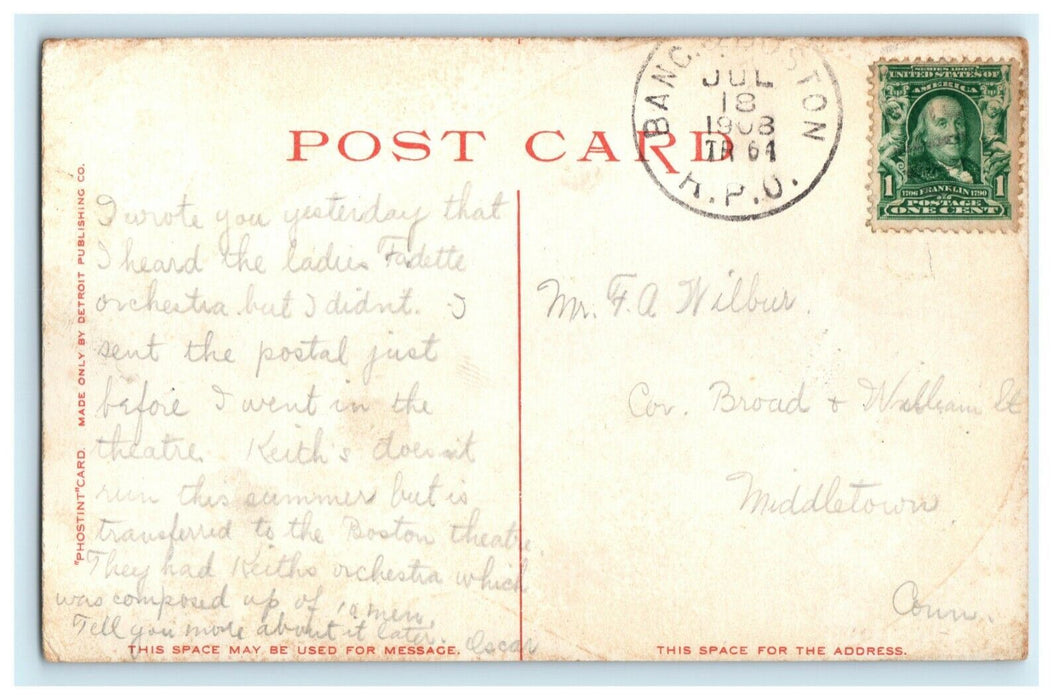 POST CARD
BANG. & BOSTON
JUL
18
1908
TR 64
R.P.O.
SERIES 1902
UNITED STATES OF
AMERICA
1 1706 FRANKLIN 1790 1
POSTAGE
ONE CENT
"PHOSTINT" CARD. MADE ONLY BY DETROIT PUBLISHING CO.
I wrote you yesterday that
I heard the ladies Fadette
orchestra but I didnt. I
sent the postal just
before I went in the
theatre. Keith's doesn't
run this summer but is
transferred to the Boston theatre.
They had Keiths orchestra which
was composed up of men.
Tell you more about it later. Oscar
THIS SPACE MAY BE USED FOR MESSAGE.
Mr. F. A Wilbur.
Cor. Broad & William St
Middletown.
Conn.
THIS SPACE FOR THE ADDRESS.